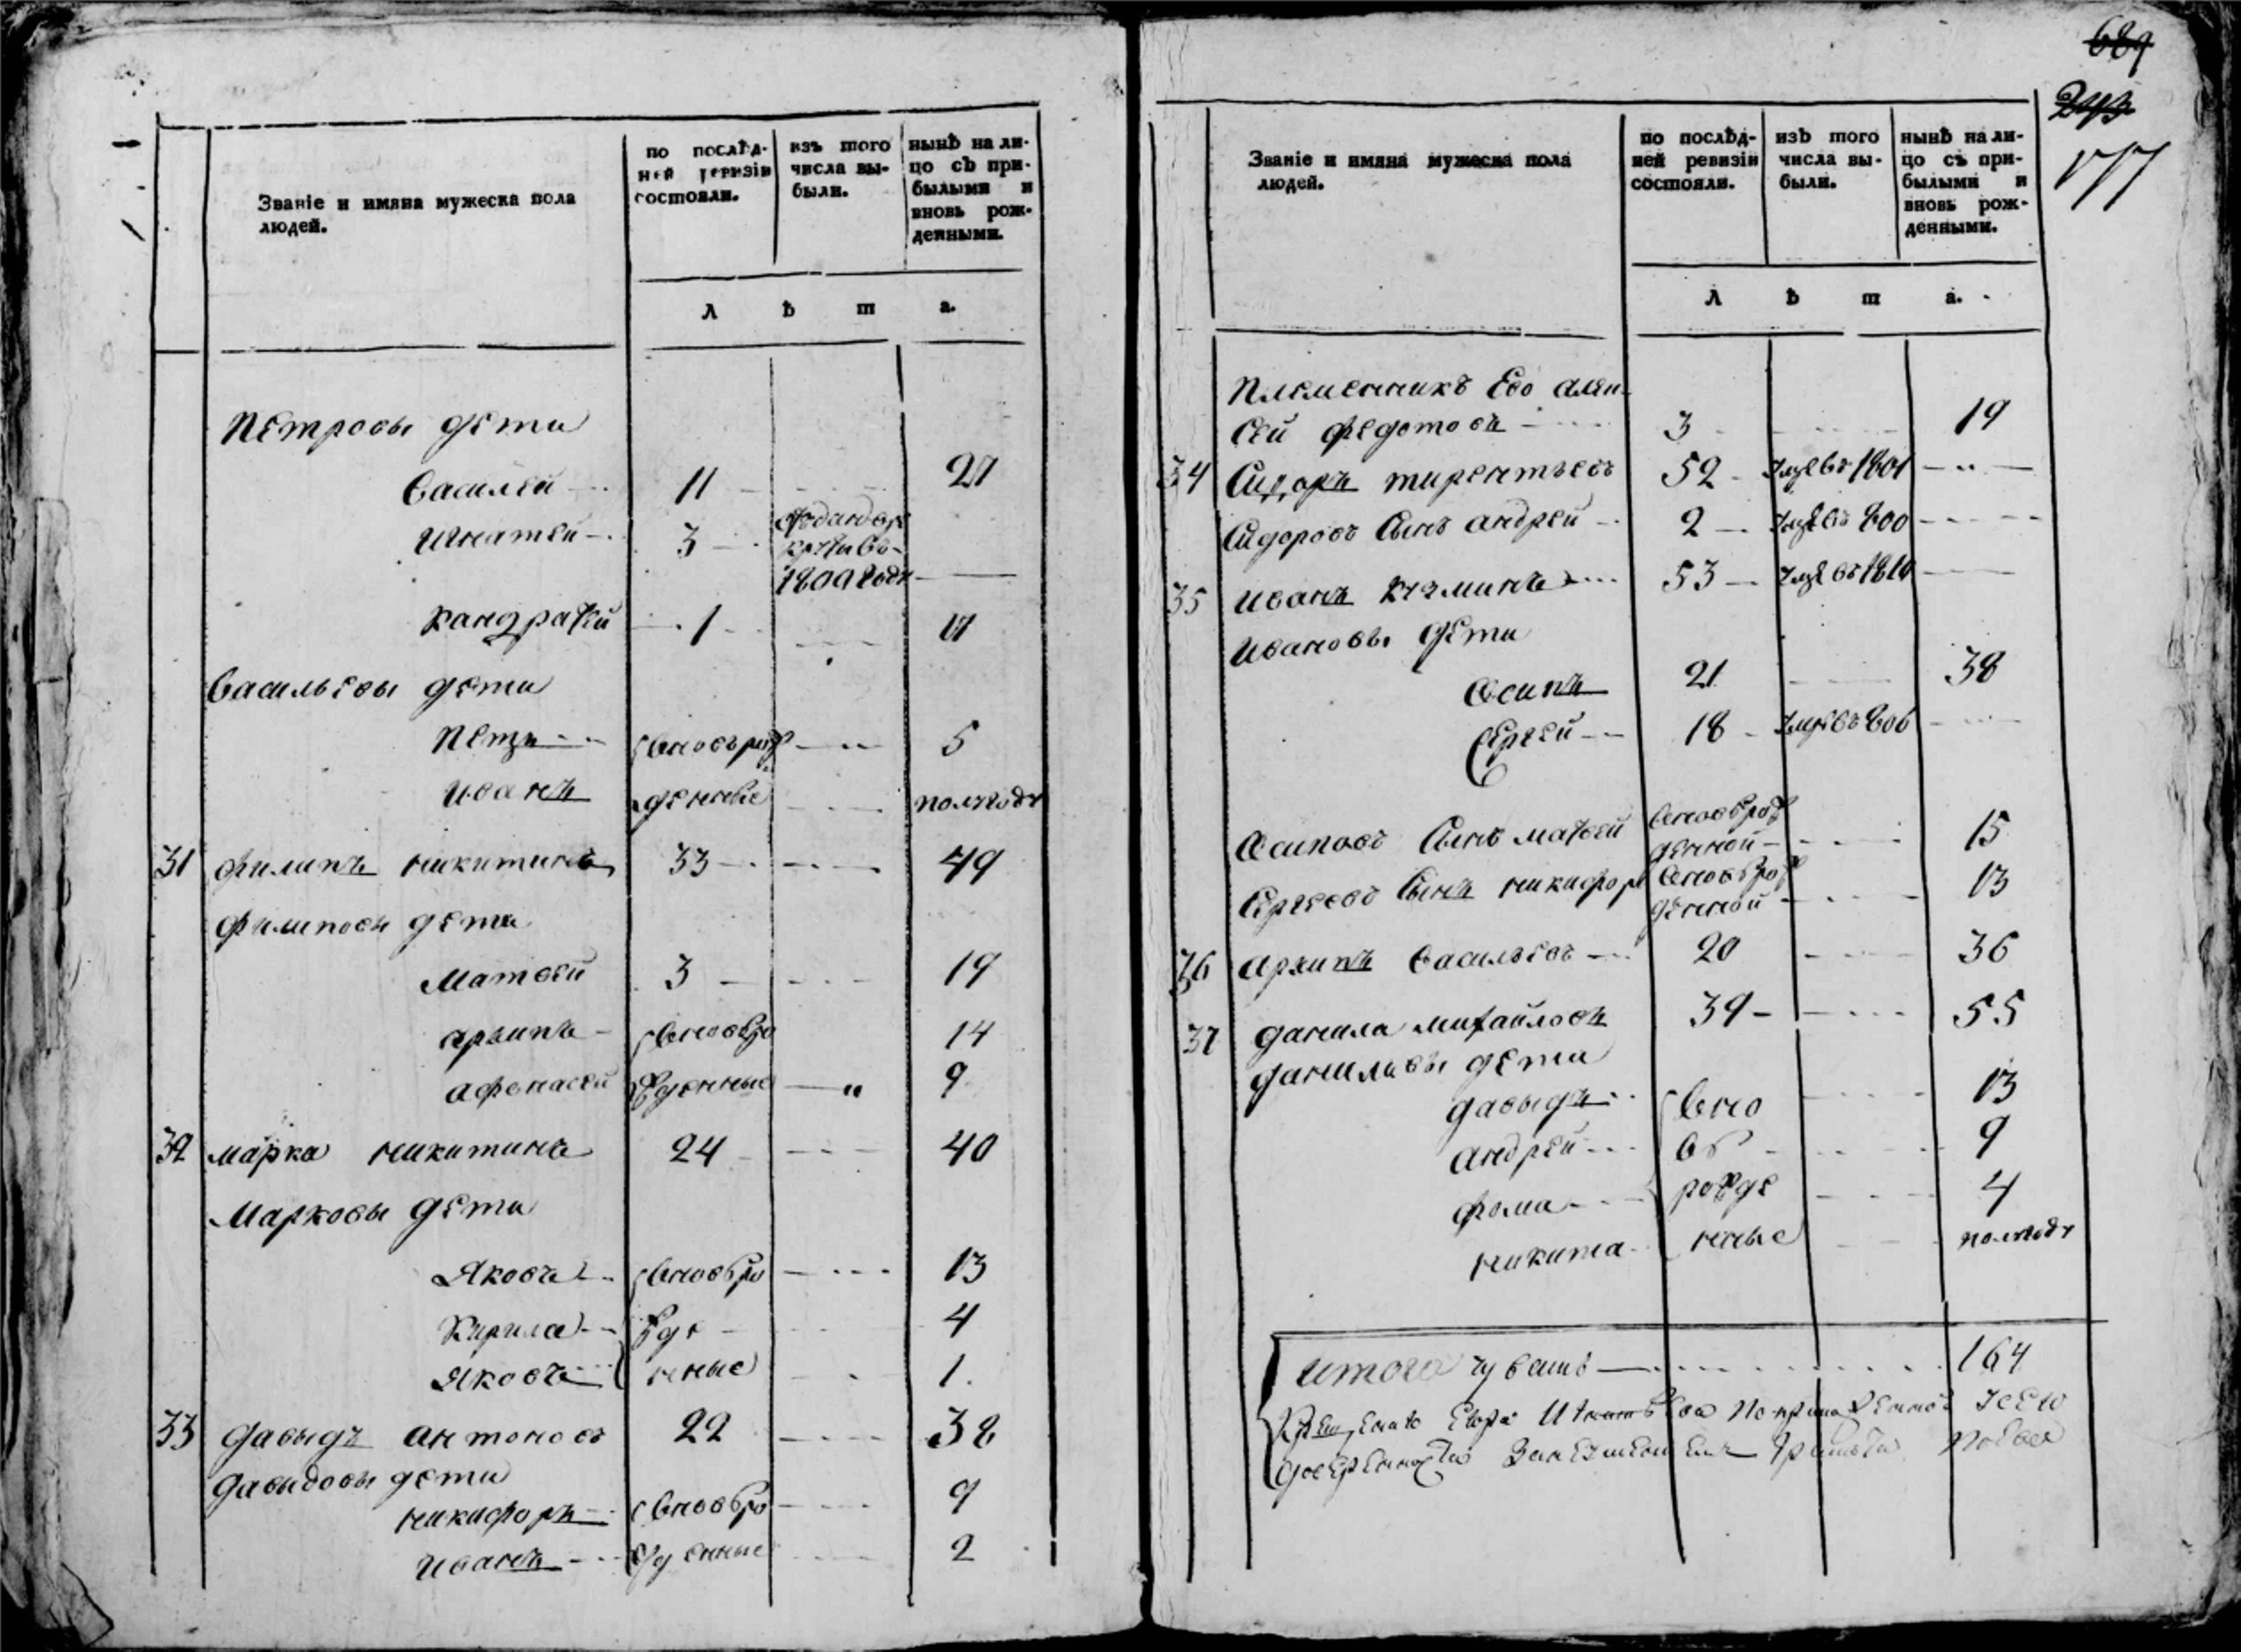 Званіе и имяна мужеска пола
людей.
по послѣд-
ней ревизіи
состояли.
изъ того
числа вы-
были.
нынѣ на ли-
цо съ при-
былыми и
вновь рож-
денными.
л ѣ т а.
Петровы дети
Василей 11 27
Игнатей 3 отдан в ре
круты въ
1809 году
Кандратей 1 17
Васильевы дети
Петръ вновърож 5
Иванъ денные полугоду
31 Филипъ Никитинъ 33 49
Филиповы дети
Матвей 3 19
Архипъ вновъро 14
Афонасей жденные 9
32 Марка Никитинъ 24 40
Марковы дети
Яковъ вновъро 13
Кирила жде 4
Яковъ нные 1.
33 Давыдъ Антоновъ 22 38
Давыдовы дети
Никифоръ вновъро 9
Иванъ жденные 2
689
243
177
Званіе и имяна мужеска пола
людей.
по послѣд-
ней ревизіи
состояли.
изъ того
числа вы-
были.
нынѣ на ли-
цо съ при-
былыми и
вновь рож-
денными.
л ѣ т а.
Племенникъ Ево Алек
сей Федотовъ 3 19
34 Сидоръ Тирентьевъ 52 Умре въ 1801
Сидоровъ Сынъ Андрей 2 Умре въ 800
35 Иванъ Кузминъ 53 Умре въ 1810
Ивановы дети
Осипъ 21 38
Сергей 18 Умре въ 806
Осиповъ Сынъ Матвей вновърож
денной 15
Сергеевъ Сынъ Никифоръ вновърож
денной 13
36 Архипъ Васильевъ 20 36
37 Данила Михайловъ 39 55
Даниловы дети
Давыдъ вно 13
Андрей въ 9
Фома рожде 4
Никита нные полугоду
Итого чувашъ 164